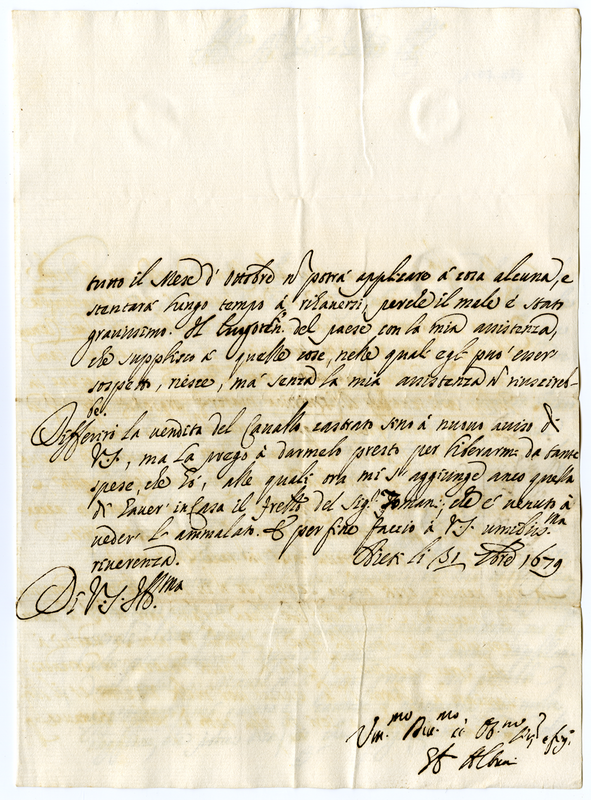 tutto il Mese d' Ottobre nõ potrá applicare á cosa alcuna, e
stentará lungo tempo á rihauersi, perche il male é stato
grauissimo. Il luogoten.ᵗᵉ del paese con la mia assistenza,
che supplisco á quelle cose, nelle quali egli puó esser
sospetto, riesce, má senza la mia assistenza nõ riuscireb-
be.
Differirí la vendita del Cauallo castrato sino á nuouo auiso di
V.S., ma La prego á darmelo presto per liberarmi da tante
spese, che hó, alle quali ora mi s' aggiunge anco quella
di hauer in Casa il fretto del Sig.ʳ, che é venuto á
veder l' ammalato. E per fine faccio á V.S. umiliss.ᵐᵃ
riuerenza.
li 7bre 1679
Di V.S. Ill.ᵐᵃ
Um.ᵐᵒ Diu.ᵐᵒ et Ob.ᵐᵒ